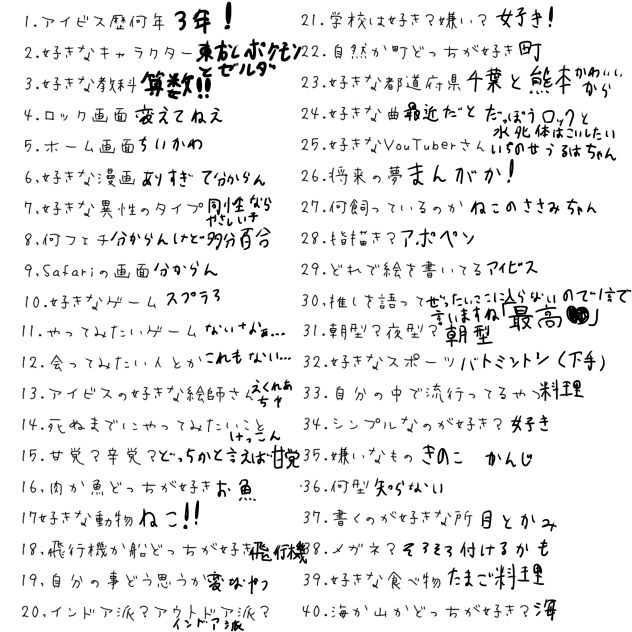 1. アイビス歴何年 3年!
2.好きなキャラクター 東方とポケモンとゼルダ
3.好きな教科 算数!!
4.ロック画面 変えてねえ
5.ホーム画面 ちいかわ
6.好きな漫画 ありすぎて分からん
7.好きな異性のタイプ 同性ならやさしい子
8.何フェチ 分からんけど多分百合
9.Safariの画面 分からん
10.好きなゲーム スプラ3
11.やってみたいゲーム ないさぁぁ…
12.会ってみたい人とか これもない…
13.アイビスの好きな絵師さん えくれあちゃ
14.死ぬまでにやってみたいこと けっこん
15.甘党?辛党? どっちかと言えば甘党
16.肉か魚どっちが好き お魚
17好きな動物 ねこ!!
18.飛行機か船どっちが好き 飛行機
19.自分の事どう思うか 変なやつ
20.インドア派?アウトドア派? インドア派
21.学校は好き?嫌い? 好き!
22.自然か町どっちが好き 町
23.好きな都道府県 千葉と熊本かわいいから
24.好きな曲 最近だと だっぽうロックと水死体はこいしたい
25.好きなYouTuberさん いちのせうるはちゃん
26.将来の夢 まんがか!
27.何飼っているのか ねこのささみちゃん
28.指描き? アポペン
29.どれで絵を書いてる アイビス
30.推しを語って ぜったいここに入らないので1言で言いますね「最高」
31.朝型?夜型? 朝型
32.好きなスポーツ バトミントン(下手)
33.自分の中で流行ってるやつ 料理
34.シンプルなのが好き? 好き
35.嫌いなもの きのこ かんじ
36.何型 知らない
37.書くのが好きな所 目とかみ
38.メガネ? そろそろ付けるかも
39.好きな食べ物 たまご料理
40.海か山かどっちが好き? 海